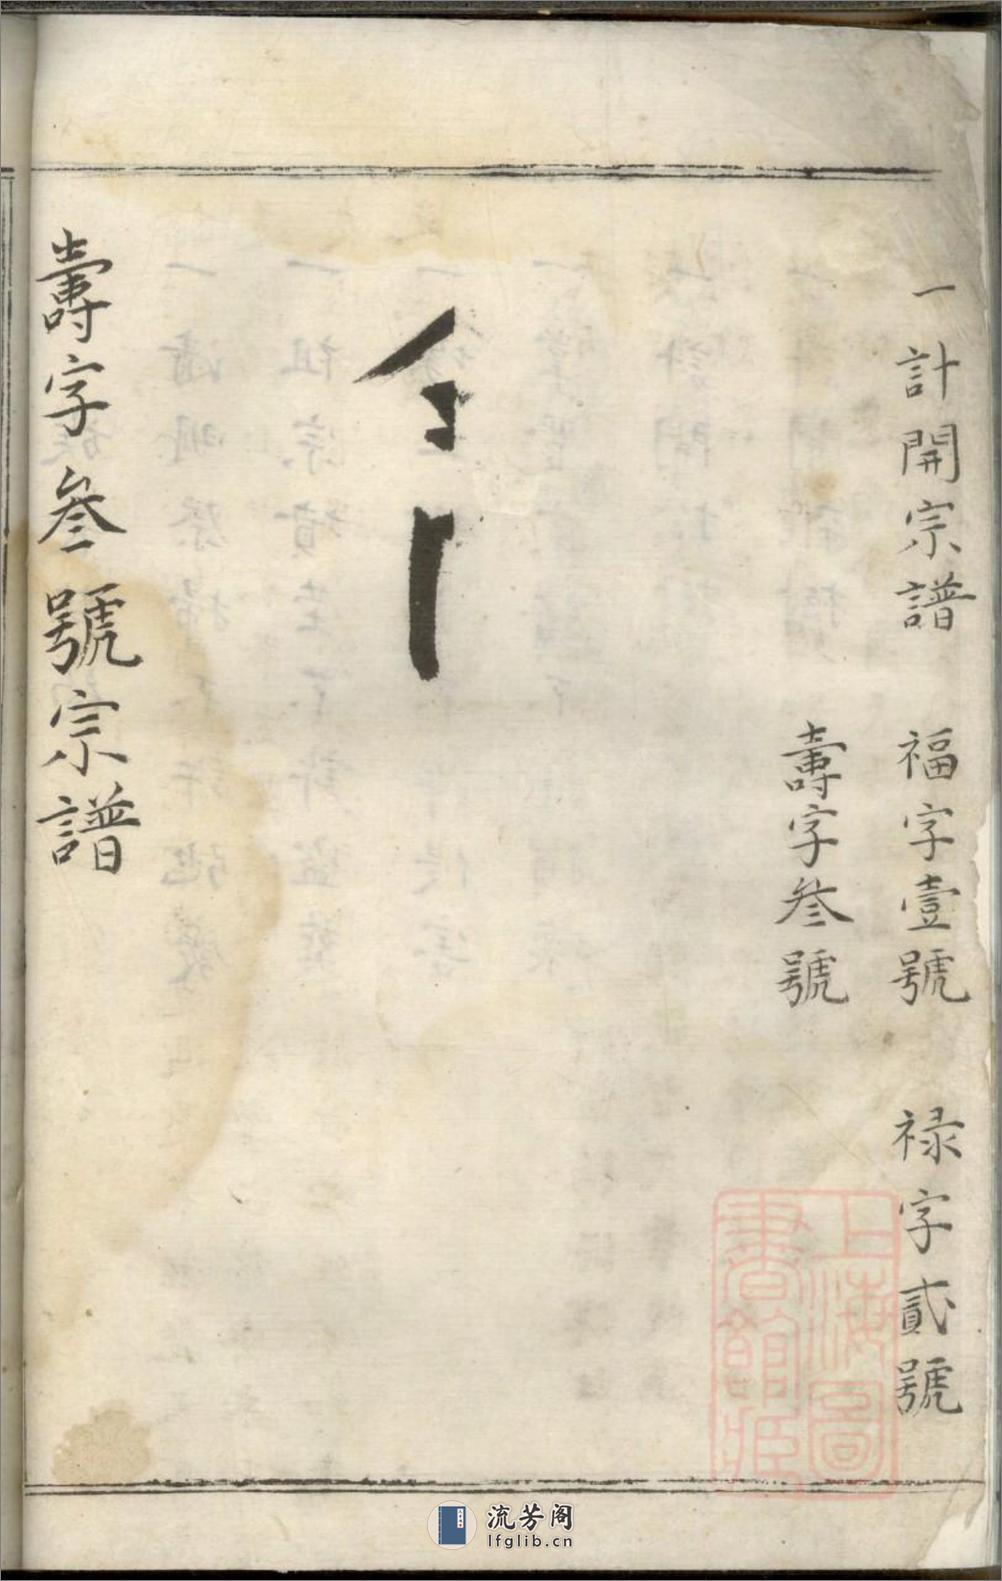 一計開宗譜 福字壹號 禄字貳號
壽字叄號
壽字叄號宗譜
上海圖
書館藏
流芳阁
lfglib.cn